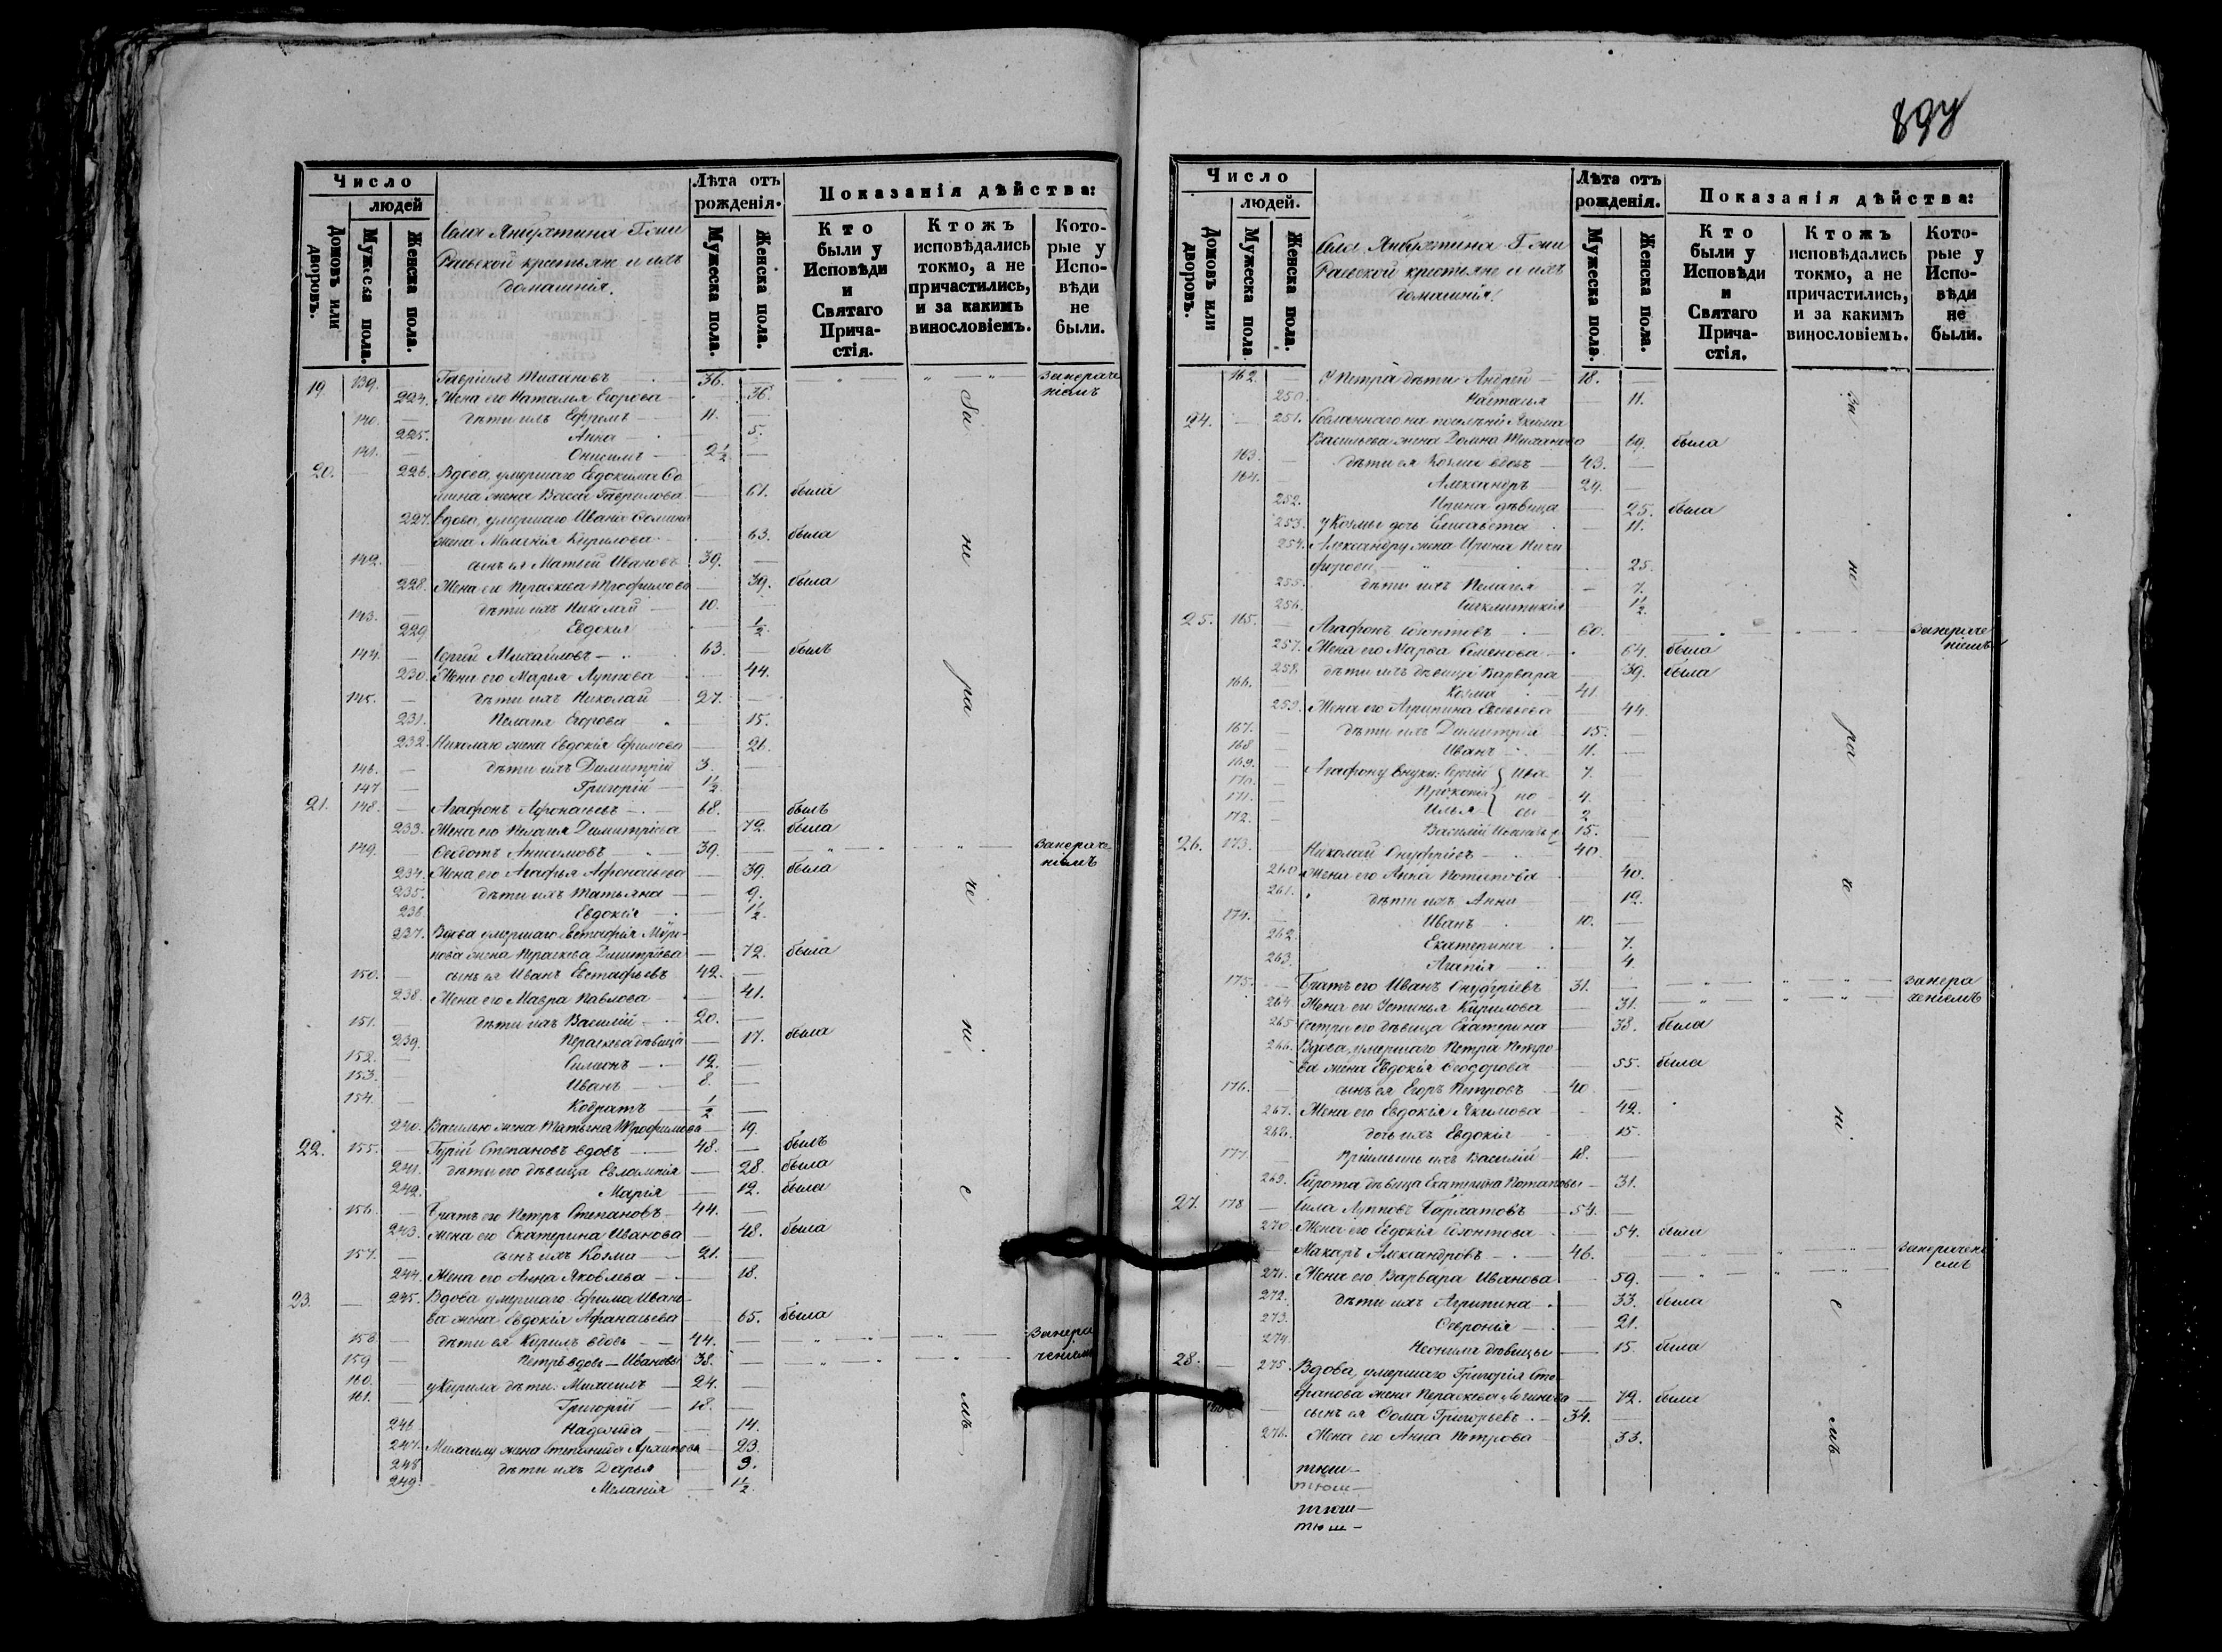 Число
людей
Домовъ или дворовъ.
Мужеска пола.
Женска пола.
Лѣта отъ рожденія.
Мужеска пола.
Женска пола.
Показанія дѣйства:
Кто были у Исповѣди и Святаго Прича-стія.
Ктожъ исповѣдались токмо, а не причастились, и за какимъ винословіемъ.
Кото-рые у Испо-вѣди не были.
крестьяне и ихъ
домашнія.
19. 139. — Гавріилъ — 36. — занераче
224. Жена его Наталья Егорова — 36. ніемъ
140. — дѣти ихъ Ефремъ — 11. —
225. Анна — 5.
141. — Онисимъ — 2½ —
20. 226. Вдова, умершаго Евдокима Ѳо
мина жена Васса Гаврилова — 61. была
227. Вдова, умершаго Ивана Ѳомина
жена Меланія Кирилова — 63. была
142. сынъ ея Матѳій Ивановъ 39. —
228. Жена его Параскева Трофимова — 39. была
143. — дѣти ихъ Николай — 10. —
229 Евдокія — ½.
144. — Сергей Михайловъ — 63. — былъ
230. Жена его Марья Луппова — 44.
145. — дѣти ихъ Николай — 27. —
231. Пелагія Егорова — 15.
232. Николаю жена Евдокія Ефимова — 21.
146. — дѣти ихъ Димитрій 3. —
147 — Григорій — 1½ —
21. 148. — Агафонъ Афонасьевъ — 68. — былъ
233. Жена его Пелагія Димитріева — 72. была
149. — Ѳедотъ Анисимовъ — 39. — занераче-
234. Жена его Агафья Афонасьева — 39. была ніемъ
235. дѣти ихъ Татьяна — 9.
236. Евдокія — 1½.
237. Вдова умершаго Евстафія Миро-
нова жена Параскева Димитріева — 72. была
150. — сынъ ея Иванъ Евстафьевъ 42. —
238. Жена его Мавра Павлова — 41.
151. — дѣти ихъ Василій — 20. —
239. Параскева дѣвица — 17. была
152. — Симеонъ — 12. —
153. — Иванъ — 8. —
154. — Кодратъ — ½ —
240. Василью жена Татьяна Трофимова — 19.
22. 155. — Гурій Степановъ вдовъ — 48. — былъ
241. дѣти его дѣвица Евлампія — 28. была
242. Марія — 12. была
156. — Братъ его Петръ Степановъ — 44. —
243. Жена его Екатерина Иванова — 48. была
157. — сынъ ихъ Козма — 21. —
244. Жена его Анна Яковлева — 18.
23. — 245. Вдова умершаго Ефима Ивано-
ва жена Евдокія Афанасьева — 65. была
158 — дѣти ея Кирилъ вдовъ — 44. — занера
159 — Петръ вдовъ — Ивановы 38. — ченіемъ
160. — у Кирила дѣти: Михаилъ — 24. —
161. — Григорій — 18. —
246. Надежда — 14.
247. Михаилу жена Степанида Архипова — 23.
248 дѣти ихъ Дарья — 3.
249. Меланія — 1½.
За не ра че ні е мъ
Число
людей.
Домовъ или дворовъ.
Мужеска пола.
Женска пола.
Лѣта отъ рожденія.
Мужеска пола.
Женска пола.
Показанія дѣйства:
Кто были у Исповѣди и Святаго Прича-стія.
Ктожъ исповѣдались токмо, а не причастились, и за какимъ винословіемъ.
Кото-рые у Испо-вѣди не были.
крестьяне и ихъ
домашнія.
162. — У Петра дѣти Андрей — 18. —
250. Настасья — 11.
24. — 251. Сосланнаго на поселеніе
Васильева жена Домна — 69. была
163. — дѣти ея Козма вдовъ — 43. —
164. — Александръ — 29. —
252. Ирина дѣвица — 25. была
253. у Козмы дочь Елисавета — 11.
254. Александру жена Ирина Ники
форова — 25.
255. дѣти ихъ Пелагія — 7.
256. Синклитикія 1½.
25. 165. — Агафонъ Созонтовъ — 60. — занераче
257. Жена его Марья Семенова — 64. была ніемъ
258. дѣти ихъ дѣвица Варвара — 39. была
166. — Козма — 41.
259. Жена его Агрипина Евсевьева — 44.
167. — дѣти ихъ Димитрій — 15. —
168 — Иванъ — 11. —
169. — Агафону внуки: Сергій { Ива- 7. —
170. Прокопій { но 4. —
171. — Илья { вы 2 —
172. — Василій 15. —
26. 173. — Николай Онуфріевъ — 40. —
260 Жена его Анна Потапова — 40.
261. дѣти ихъ Анна — 12.
174. — Иванъ — 10. —
262. Екатерина — 7.
263. Агапія — 4.
175. — Братъ его Иванъ Онуфріевъ 31. — занера
264. Жена его Устинья Кирилова — 31. ченіемъ
265 Сестра его дѣвица Екатерина — 38. была
266. Вдова, умершаго Петра Петро-
ва жена Евдокія Ѳеодорова — 55. была
176. сынъ ея Егоръ Петровъ — 40 —
267. Жена его Евдокія Якимова — 42.
268. дочь ихъ Евдокія — 15.
177. — Пріемышъ ихъ Василій — 18. —
269. Сирота дѣвица Екатерина Потапова — 31.
27. 178 — Сила Лупповъ Бархатовъ — 54. —
270. Жена его Евдокія Созонтова — 54. была
Макаръ Александровъ — 46. — занерачені
271. Жена его Варвара Иванова — 59. емъ
272. дѣти ихъ Агрипина — 33. была
273. Ѳевронія — 21.
274. Неонила дѣвицы — 15. была
28. — 275. Вдова, умершаго Григорія Сте-
фанова жена Параскева Логинова — 72. была
сынъ ея Ѳома Григорьевъ — 34. —
276. Жена его Анна Петрова — 33.
За не ра че ні е мъ